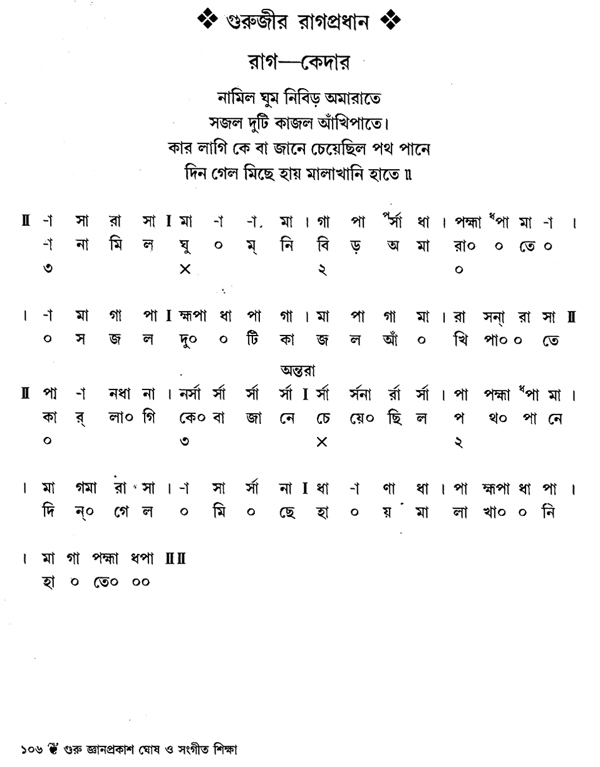 ❖ গুরুজীর রাগপ্রধান ❖
রাগ—কেদার
নামিল ঘুম নিবিড় অমারাতে
সজল দুটি কাজল আঁখিপাতে।
কার লাগি কে বা জানে চেয়েছিল পথ পানে
দিন গেল মিছে হায় মালাখানি হাতে॥
II -া সা রা সা I মা -া -া. মা । গা পা র্পর্সা ধা । পহ্মা ধপা মা -া ।
-া না মি ল ঘু ০ ম্ নি বি ড় অ মা রা০ ০ তে ০
৩ × ২ ০
। -া মা গা পা I হ্মপা ধা পা গা । মা পা গা মা । রা সন্া রা সা II
০ স জ ল দু০ ০ টি কা জ ল আঁ ০ খি পা০ ০ তে
অন্তরা
II পা -া নধা না । নর্সা র্সা র্সা র্সা I র্সা র্সনা র্রা র্সা । পা পহ্মা ধপা মা ।
কা র্ লা০ গি কে০ বা জা নে চে য়ে০ ছি ল প থ০ পা নে
০ ৩ × ২
। মা গমা রা সা । -া সা র্সা না I ধা -া ণা ধা । পা হ্মপা ধা পা ।
দি ন্০ গে ল ০ মি ০ ছে হা ০ য় মা লা খা০ ০ নি
। মা গা পহ্মা ধপা II II
হা ০ তে০ ০০
১০৬ গুরু জ্ঞানপ্রকাশ ঘোষ ও সংগীত শিক্ষা